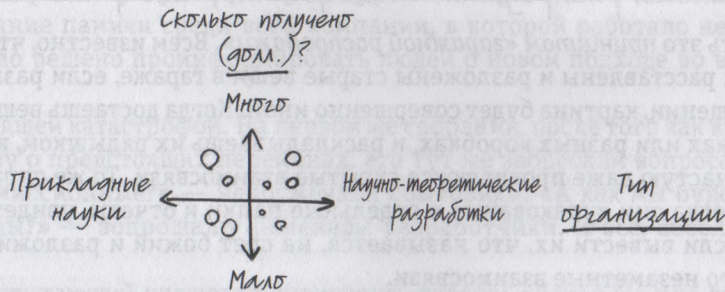 Сколько получено
(долл.)?
Много
Прикладные
науки
Научно-теоретические
разработки
Тип
организации
Мало